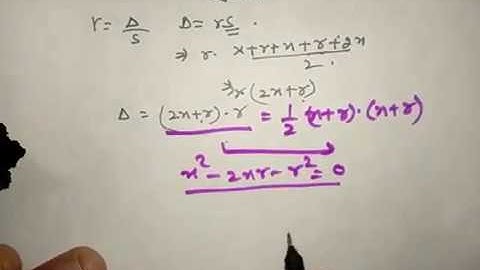 r = Δ/S Δ = rS.
⇒ r. x+r+x+r+2x/2.
⇒ r(2x+r)
Δ = (2x+r).r = 1/2 (x+r).(x+r)
x² - 2xr - r² = 0